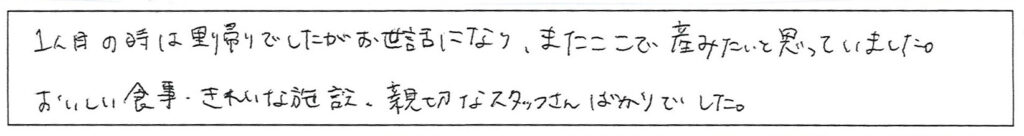 1人目の時は里帰りでしたがお世話になり、またここで産みたいと思っていました。
おいしい食事・きれいな施設、親切なスタッフさんばかりでした。